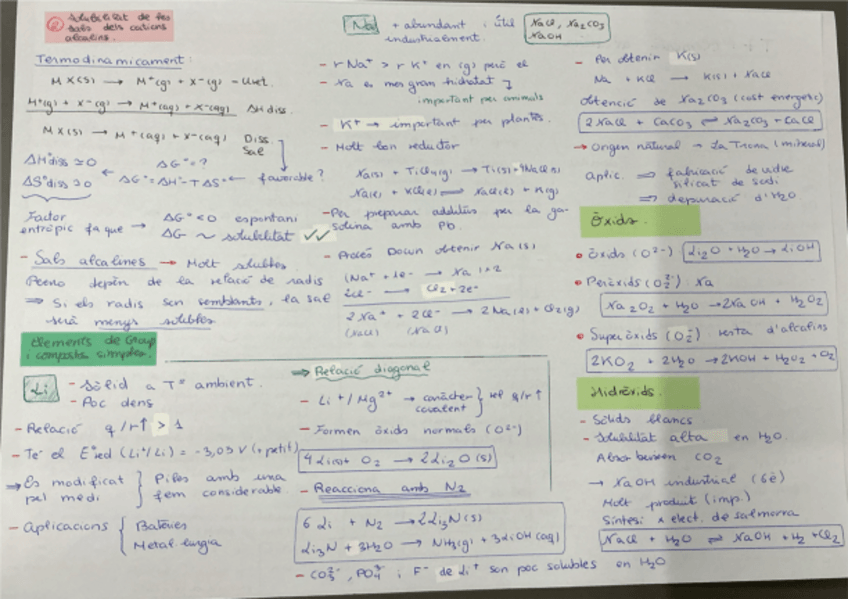 ② Solubilitat de les
sals dels cations
alcalins.
Termodinamicament:
MX(s) → M⁺(g) + X⁻(g) - Uret.
M⁺(g) + X⁻(g) → M⁺(aq) + X⁻(aq) ΔH diss.
MX(s) → M⁺(aq) + X⁻(aq) Diss. Sal
ΔH°diss ≃ 0 ΔG° = ?
ΔS°diss > 0 ← ΔG° = ΔH° - TΔS° ← favorable?
Factor
entròpic fa que → ΔG° < 0 espontani
ΔG ~ solubilitat ✓✓
- Sals alcalines → Molt solubles
Però depèn de la relació de radis
⇒ Si els radis son semblants, la sal
serà menys solubles
Elements de Grup
i compostos simples.
Li
- Sòlid a Tª ambient.
- Poc dens
- Relació q/r↑ > 1
- Té el E°red (Li⁺/Li) = -3,05 V (+ petit)
⇒ Es modificat
pel medi
Piles amb una
fem considerable.
- Aplicacions
Bateries
Metal·lurgia
Na + abundant i útil
industrialment.
NaCl, Na2CO3
NaOH
- r Na⁺ > r K⁺ en (g) però el
- Na es mes gran hidratat
important per animals
- K⁺ → important per plantes.
- Molt bon reductor
Na(s) + TiCl4(g) → Ti(s) + 4NaCl(s)
Na(l) + KCl(l) ⇌ NaCl(l) + K(g)
- Per preparar additius per la ga-
solina amb Pb.
- Procés Down obtenir Na(s)
(Na⁺ + 1e⁻ → Na) × 2
2Cl⁻ → Cl2 + 2e⁻
2Na⁺ + 2Cl⁻ → 2Na(l) + Cl2(g)
(NaCl) (NaCl)
⇒ Relació diagonal
- Li⁺/Mg²⁺ → caràcter
covalent } rel q/r↑
- Formen òxids normals (O²⁻)
4Li(s) + O2 → 2Li2O(s)
- Reacciona amb N2
6Li + N2 → 2Li3N(s)
Li3N + 3H2O → NH3(g) + 3LiOH(aq)
- CO3²⁻, PO4³⁻ i F⁻ de Li⁺ son poc solubles en H2O
- Per obtenir K(s)
Na + KCl → K(s) + NaCl
Obtenció de Na2CO3 (cost energetic)
2NaCl + CaCO3 ⇌ Na2CO3 + CaCl2
→ Origen natural → La Trona (mineral)
Aplic. ⇒ fabricació de vidre
silicat de sodi
⇒ depuració d'H2O
Òxids.
• Òxids (O²⁻) Li2O + H2O → LiOH
• Peròxids (O2²⁻): Na
Na2O2 + H2O → 2NaOH + H2O2
• Superòxids (O2⁻) resta d'alcalins
2KO2 + 2H2O → 2KOH + H2O2 + O2
Hidròxids.
- Sòlids blancs
- Solubilitat alta en H2O.
Absorbeixen CO2
→ NaOH industrial (6è)
Molt produit (imp.)
Síntesi x elect. de salmorra
NaCl + H2O ⇌ NaOH + H2 + Cl2